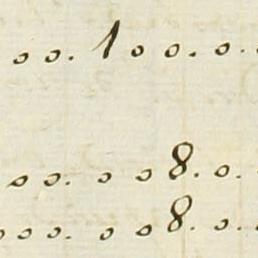 o o. 1 o o. o.
o o. o o 8. o.
o o o. o o 8. o.